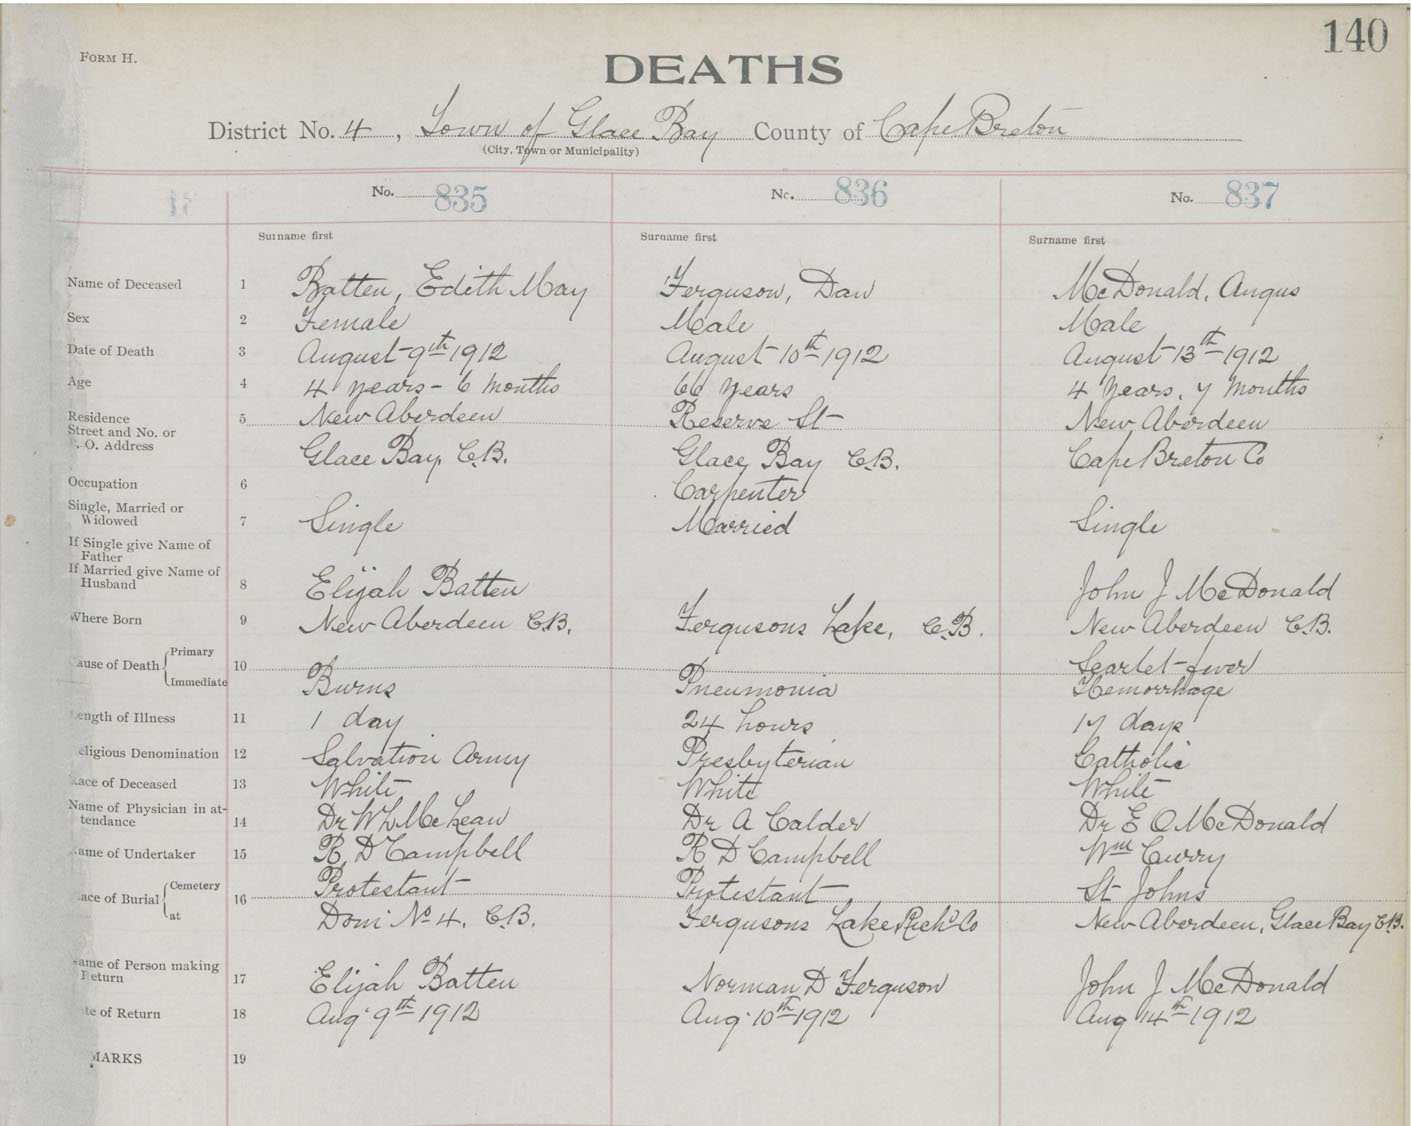 140
FORM H.
DEATHS
District No. 4, Town of Glace Bay County of Cape Breton
(City, Town or Municipality)
No. 835 No. 836 No. 837
Surname first Surname first Surname first
Name of Deceased 1 Batten, Edith May Ferguson, Dan McDonald, Angus
Sex 2 Female Male Male
Date of Death 3 August 9th 1912 August 10th 1912 August 13th 1912
Age 4 4 years - 6 months 66 years 4 years, 7 months
Residence 5 New Aberdeen Reserve St New Aberdeen
Street and No. or
P. O. Address Glace Bay, C.B. Glace Bay C.B. Cape Breton Co
Occupation 6 Carpenter
Single, Married or
Widowed 7 Single Married Single
If Single give Name of
Father
If Married give Name of
Husband 8 Elijah Batten John J McDonald
Where Born 9 New Aberdeen C.B. Fergusons Lake, C.B. New Aberdeen C.B.
ause of Death Primary 10 Scarlet-fever
Immediate Burns Pneumonia Hemorrhage
ength of Illness 11 1 day 24 hours 17 days
eligious Denomination 12 Salvation Army Presbyterian Catholic
ace of Deceased 13 White White White
Name of Physician in at-
tendance 14 Dr W L McLean Dr A Calder Dr E O McDonald
ame of Undertaker 15 R D Campbell R D Campbell Wm Curry
ace of Burial Cemetery 16 Protestant Protestant St Johns
at Dom No 4, C.B. Fergusons Lake Richd Co New Aberdeen, Glace Bay C.B.
ame of Person making
Return 17 Elijah Batten Norman D Ferguson John J McDonald
te of Return 18 Aug 9th 1912 Aug 10th 1912 Aug 14th 1912
MARKS 19